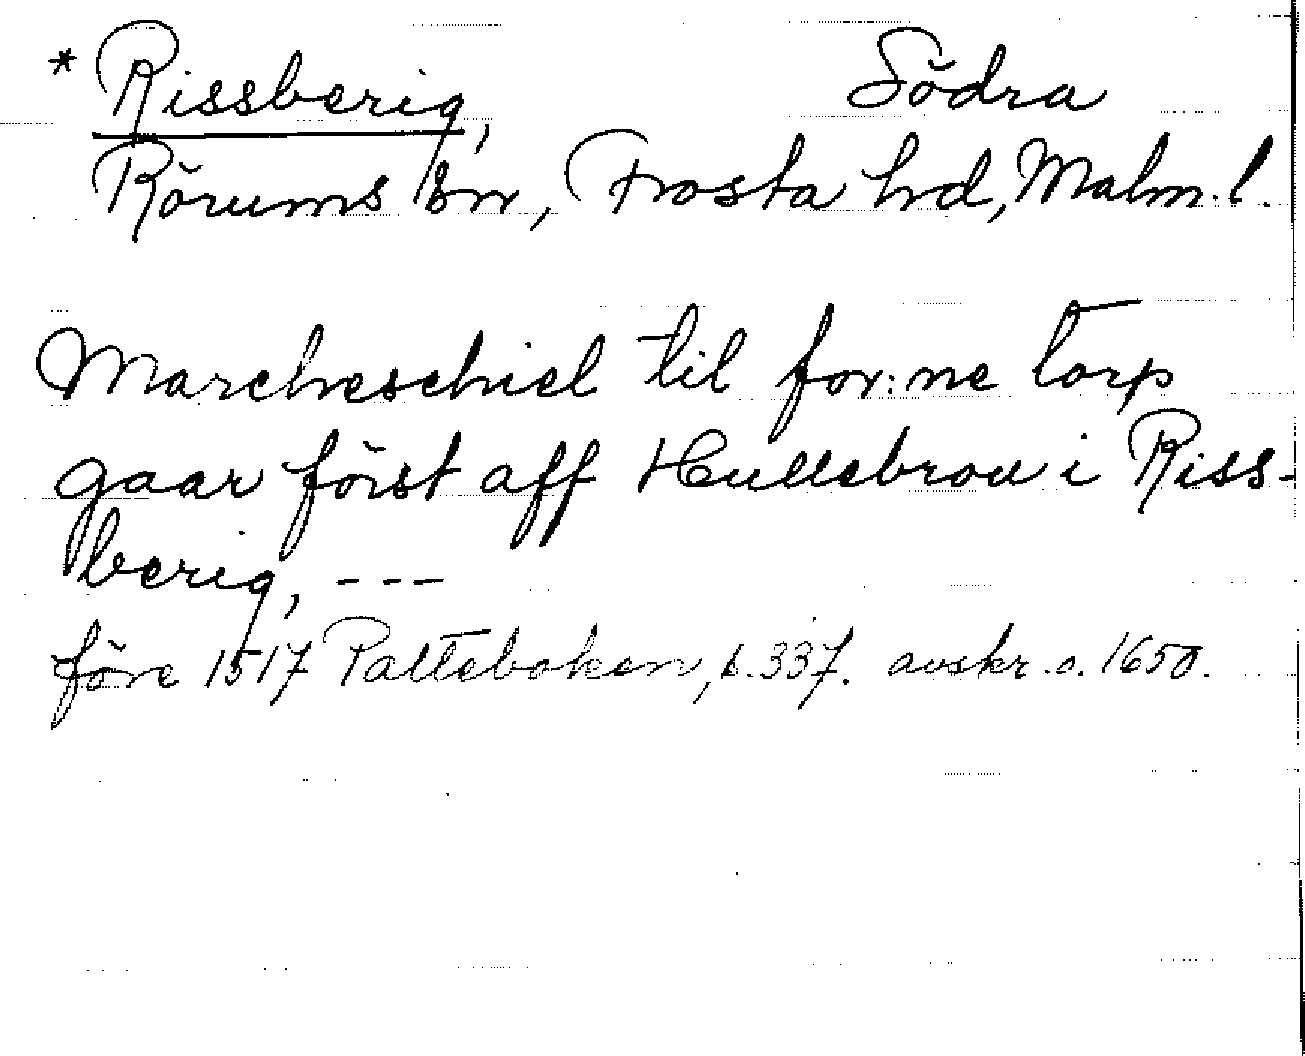 * Rissberig, Södra
Rörums sn, Frosta hd, Malm. l.
Marcheschiel til for:ne torp
gaar först aff Hullebrou i Riss-
berig, ---
före 1517 Palteboken, s. 337. avskr. o. 1650.